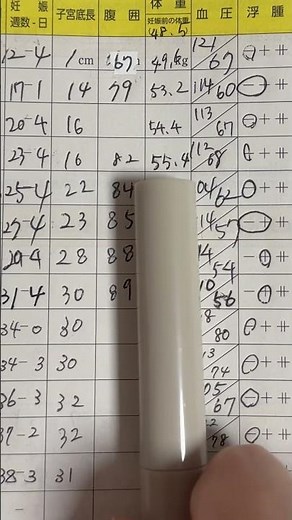 妊娠週数-日 子宮底長 腹囲 体重 妊娠前の体重 血圧 浮腫
48.5
12-4 1cm 67 49.1kg 121/67 ⊖ + ++
17-1 14 79 53.2 114/60 ⊖ + ++
20-4 16 54.4 113/67 ⊖ + ++
23-4 16 82 55.4 112/68 ⊖ + ++
25-4 22 84 62 ⊖ + ++
27-4 23 85 57 ⊖ + ++
28 88 54 - ⊕ ++
31-4 30 89 56 - ⊕ ++
34-0 30 80 ⊖ + ++
34-3 30 74 ⊖ + ++
36-3 32 67 ⊖ + ++
37-2 32 78 ⊖ + ++
38-3 31